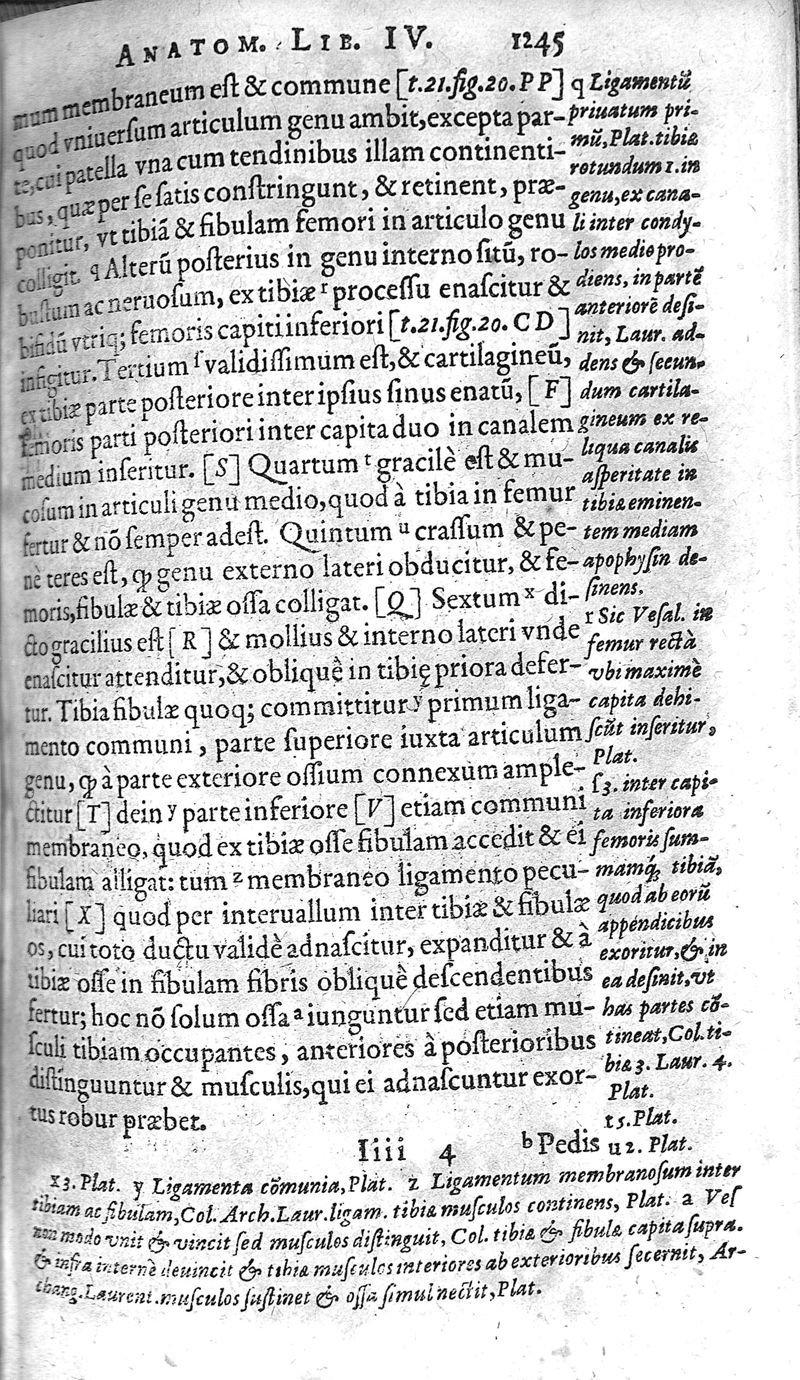 ANATOM. LIB. IV. 1245
mum membraneum eſt & commune [t.21.fig.20.PP] q
quod vniuerſum articulum genu ambit, excepta par-
te, cui patella vna cum tendinibus illam continenti-
bus, quæ per ſe ſatis conſtringunt, & retinent, præ-
ponitur, vt tibiã & fibulam femori in articulo genu
colligit. q Alterũ poſterius in genu interno ſitũ, ro-
buſtum ac neruoſum, ex tibiæ r proceſſu enaſcitur &
bifidũ vtriq; femoris capiti inferiori [t.21.fig.20. C D]
infigitur. Tertium ſ validiſſimum eſt, & cartilagineũ,
ex tibiæ parte poſteriore inter ipſius ſinus enatũ, [F]
femoris parti poſteriori inter capita duo in canalem
medium inſeritur. [S] Quartum t gracilè eſt & mu-
coſum in articuli genu medio, quod à tibia in femur
fertur & nõ ſemper adeſt. Quintum u craſſum & pe-
nè teres eſt, ꝙ genu externo lateri obducitur, & fe-
moris, fibulæ & tibiæ oſſa colligat. [Q] Sextum x di-
cto gracilius eſt [R] & mollius & interno lateri vnde
enaſcitur attenditur, & obliquè in tibię priora defer-
tur. Tibia fibulæ quoq; committitur y primum liga-
mento communi, parte ſuperiore iuxta articulum
genu, ꝙ à parte exteriore oſſium connexum ample-
ctitur [T] dein y parte inferiore [V] etiam communi
membraneo, quod ex tibiæ oſſe fibulam accedit & ei
fibulam alligat: tum z membraneo ligamento pecu-
liari [X] quod per interuallum inter tibiæ & fibulæ
os, cui toto ductu validè adnaſcitur, expanditur & à
tibiæ oſſe in fibulam fibris obliquè deſcendentibus
fertur; hoc nõ ſolum oſſa a iunguntur ſed etiam mu-
ſculi tibiam occupantes, anteriores à poſterioribus
diſtinguuntur & muſculis, qui ei adnaſcuntur exor-
tus robur præbet.
Iiii 4 b Pedis
Ligamentũ
priuatum pri-
mũ, Plat. tibiæ
rotundum 1. in
genu, ex cana-
li inter condy-
los medio pro-
diens, in partẽ
anteriorẽ deſi-
nit, Laur. ad-
dens & ſecun-
dum cartila-
gineum ex re-
liqua canalis
aſperitate in
tibiæ eminen-
tem mediam
apophyſin de-
ſinens.
r Sic Veſal. in
femur rectà
vbi maximè
capita dehi-
ſcũt inſeritur,
Plat.
ſ3. inter capi-
ta inferiora
femoris ſum-
mamq́; tibiã,
quod ab eorũ
appendicibus
exoritur, & in
ea deſinit, vt
has partes cõ-
tineat, Col. ti-
biæ 3. Laur. 4.
Plat.
t5. Plat.
u2. Plat.
x3. Plat. y Ligamenta cõmunia, Plat. z Ligamentum membranoſum inter
tibiam ac fibulam, Col. Arch. Laur. ligam. tibiæ muſculos continens, Plat. a Veſ
non modo vnit & vincit ſed muſculos diſtinguit, Col. tibiæ & fibulæ capita ſupra.
& infra internè deuincit & tibiæ muſculos interiores ab exterioribus ſecernit, Ar-
chang. Laurent. muſculos ſuſtinet & oſſa ſimul nectit, Plat.